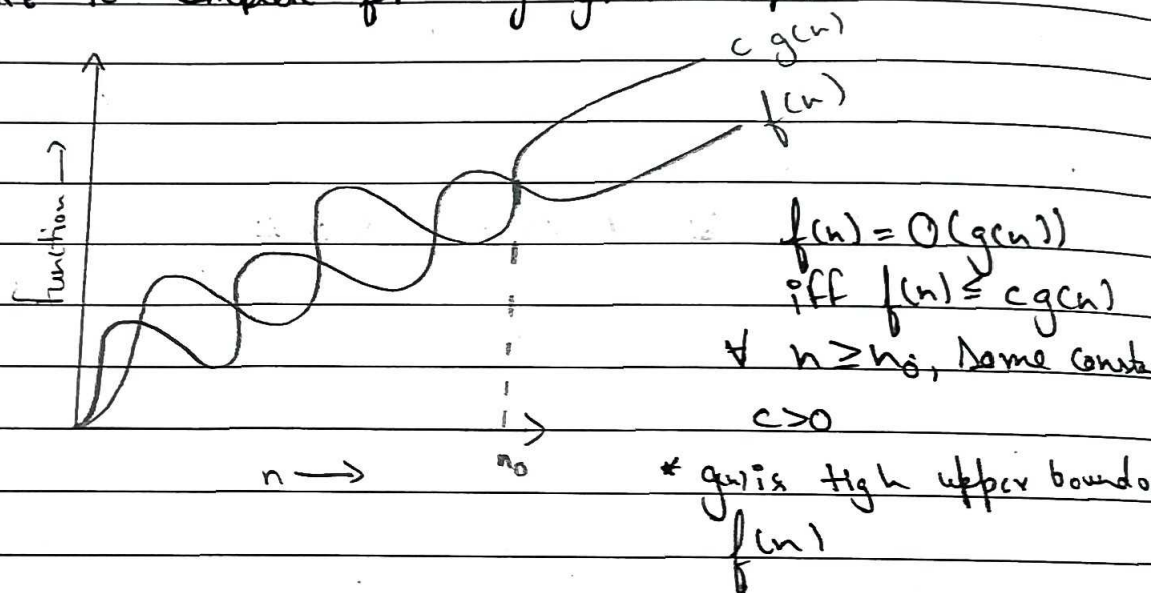 c g(n)
f(n)
Function →
f(n) = O(g(n))
iff f(n) ≤ c g(n)
∀ n ≥ n₀, some consta
c>0
n →
n₀
* g(n) is tigh upper bound o
f(n)